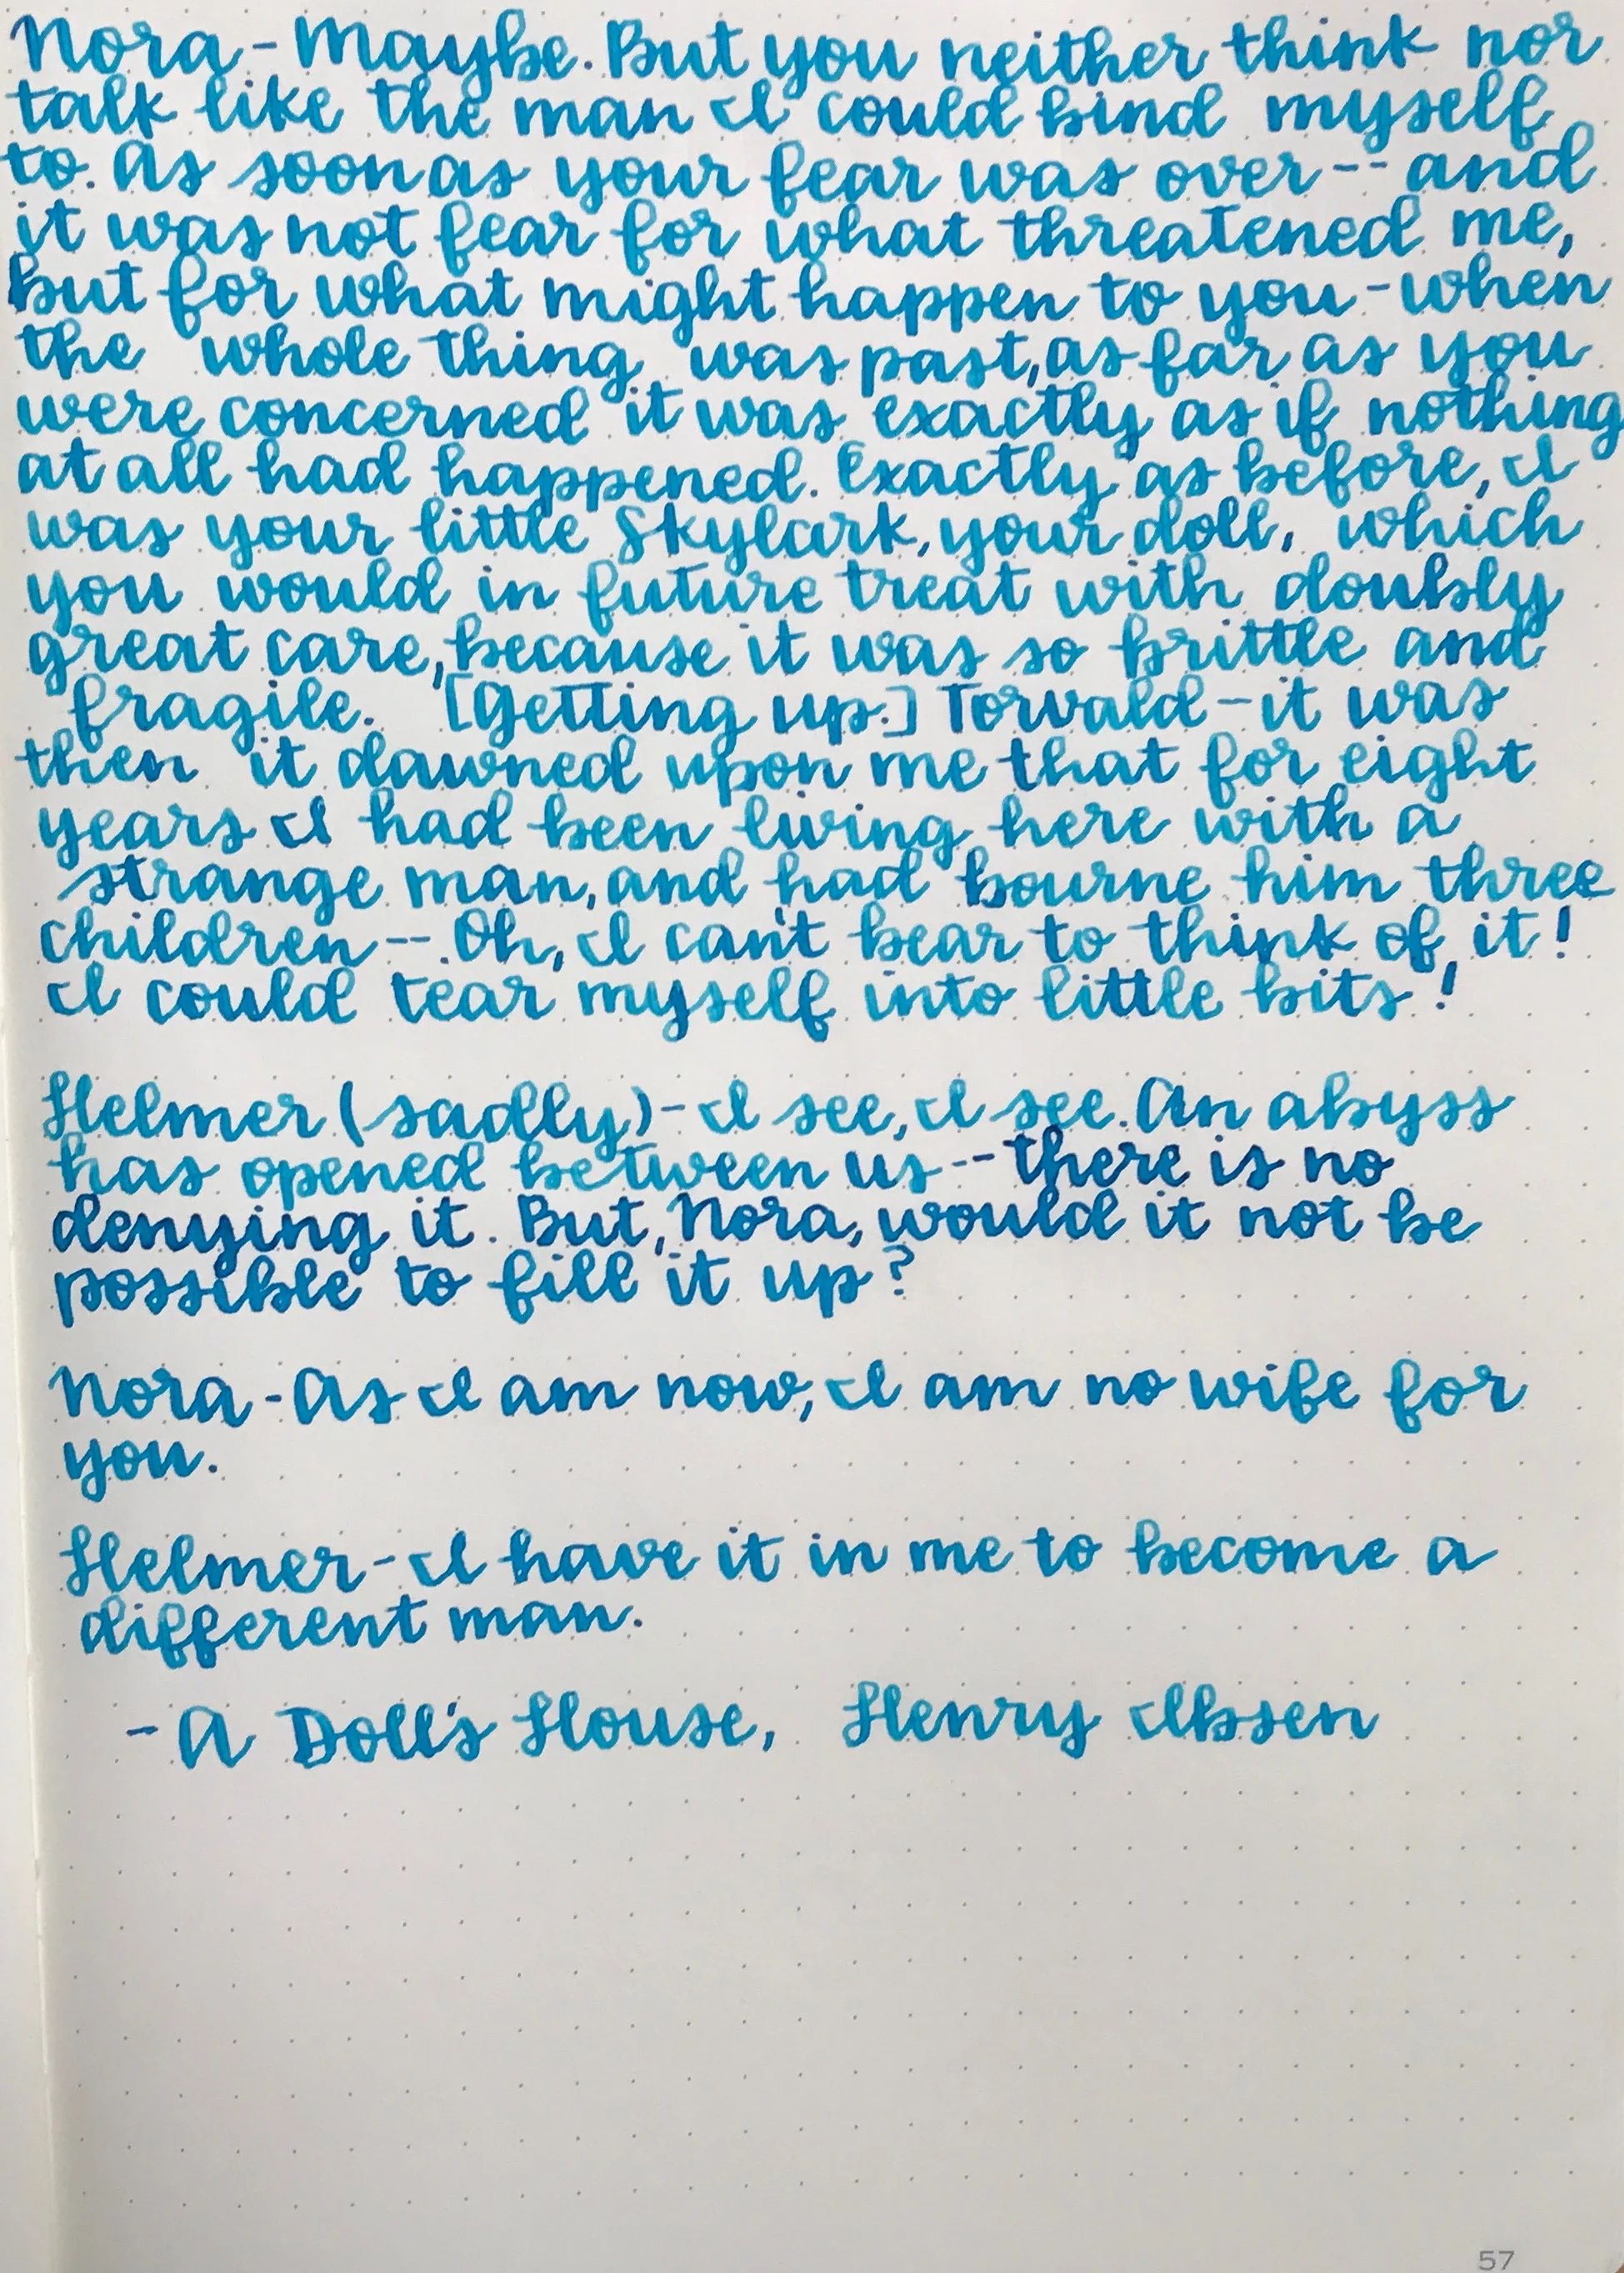 Nora - Maybe. But you neither think nor
talk like the man I could bind myself
to. As soon as your fear was over -- and
it was not fear for what threatened me,
but for what might happen to you - when
the whole thing was past, as far as you
were concerned it was exactly as if nothing
at all had happened. Exactly as before, I
was your little Skylark, your doll, which
you would in future treat with doubly
great care, because it was so brittle and
fragile. [Getting up.] Torvald - it was
then it dawned upon me that for eight
years I had been living here with a
strange man, and had bourne him three
children --. Oh, I can't bear to think of it!
I could tear myself into little bits!
Helmer (sadly) - I see, I see. An abyss
has opened between us -- there is no
denying it. But, Nora, would it not be
possible to fill it up?
Nora - As I am now, I am no wife for
you.
Helmer - I have it in me to become a
different man.
- A Doll's House, Henry Ibsen
57